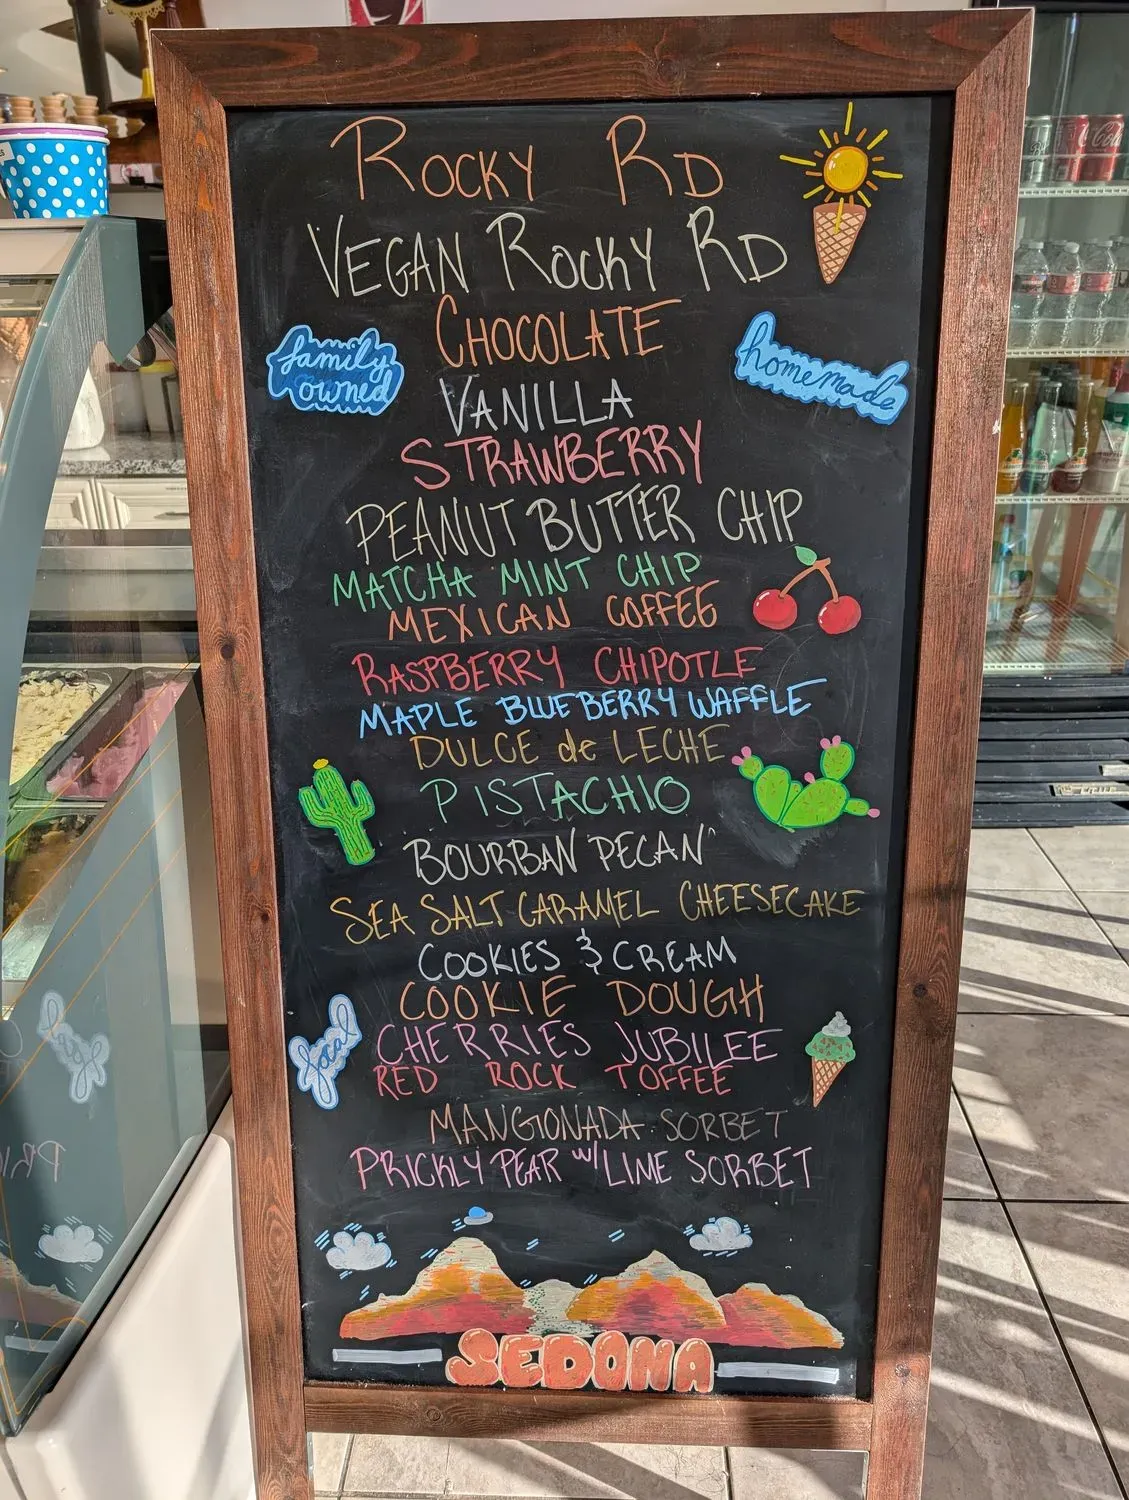 ROCKY RD
VEGAN ROCKY RD
CHOCOLATE
family
owned
homemade
VANILLA
STRAWBERRY
PEANUT BUTTER CHIP
MATCHA MINT CHIP
MEXICAN COFFEE
RASPBERRY CHIPOTLE
MAPLE BLUEBERRY WAFFLE
DULCE de LECHE
PISTACHIO
BOURBAN PECAN
SEA SALT CARAMEL CHEESECAKE
COOKIES & CREAM
COOKIE DOUGH
local
CHERRIES JUBILEE
RED ROCK TOFFEE
MANGONADA SORBET
PRICKLY PEAR w/ LIME SORBET
SEDONA